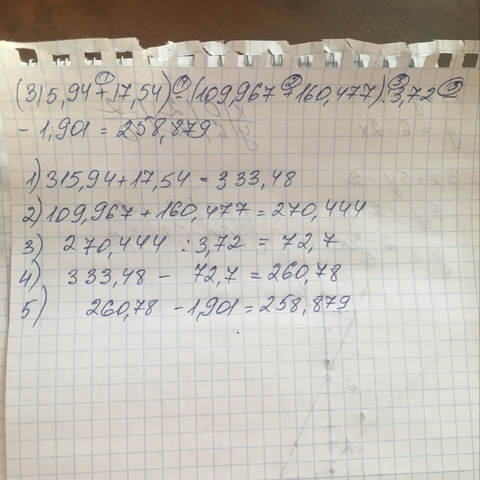 (315,94+17,54)-(109,967+160,477):3,72
- 1,901 = 258,879
1) 315,94+17,54 = 333,48
2) 109,967+160,477=270,444
3) 270,444 : 3,72 = 72,7
4) 333,48 - 72,7 = 260,78
5) 260,78 - 1,901 = 258,879